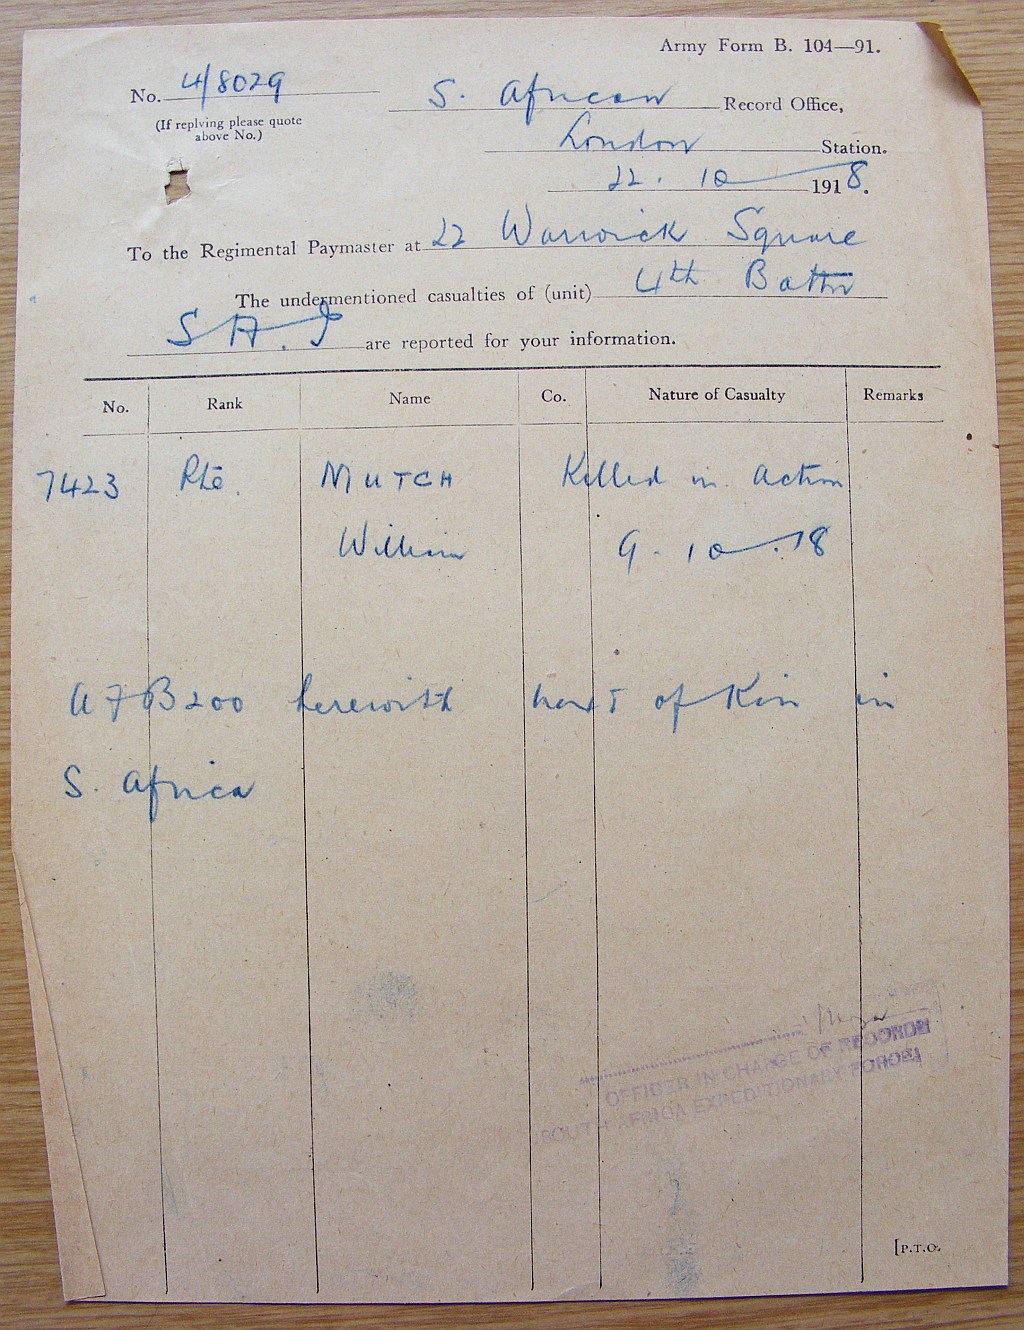 Army Form B. 104—91.
No. 4/8029
(If replying please quote
above No.)
S. African Record Office,
London Station.
22. 10 1918.
To the Regimental Paymaster at 22 Warwick Square
The undermentioned casualties of (unit) 4th Battn
S A. I are reported for your information.
No. Rank Name Co. Nature of Casualty Remarks
7423 Pte. MUTCH Killed in Action
William 9. 10. 18
A F B 200 herewith next of Kin in
S. Africa
Major
OFFICER IN CHARGE OF RECORDS
SOUTH AFRICA EXPEDITIONARY FORCE
[P.T.O.